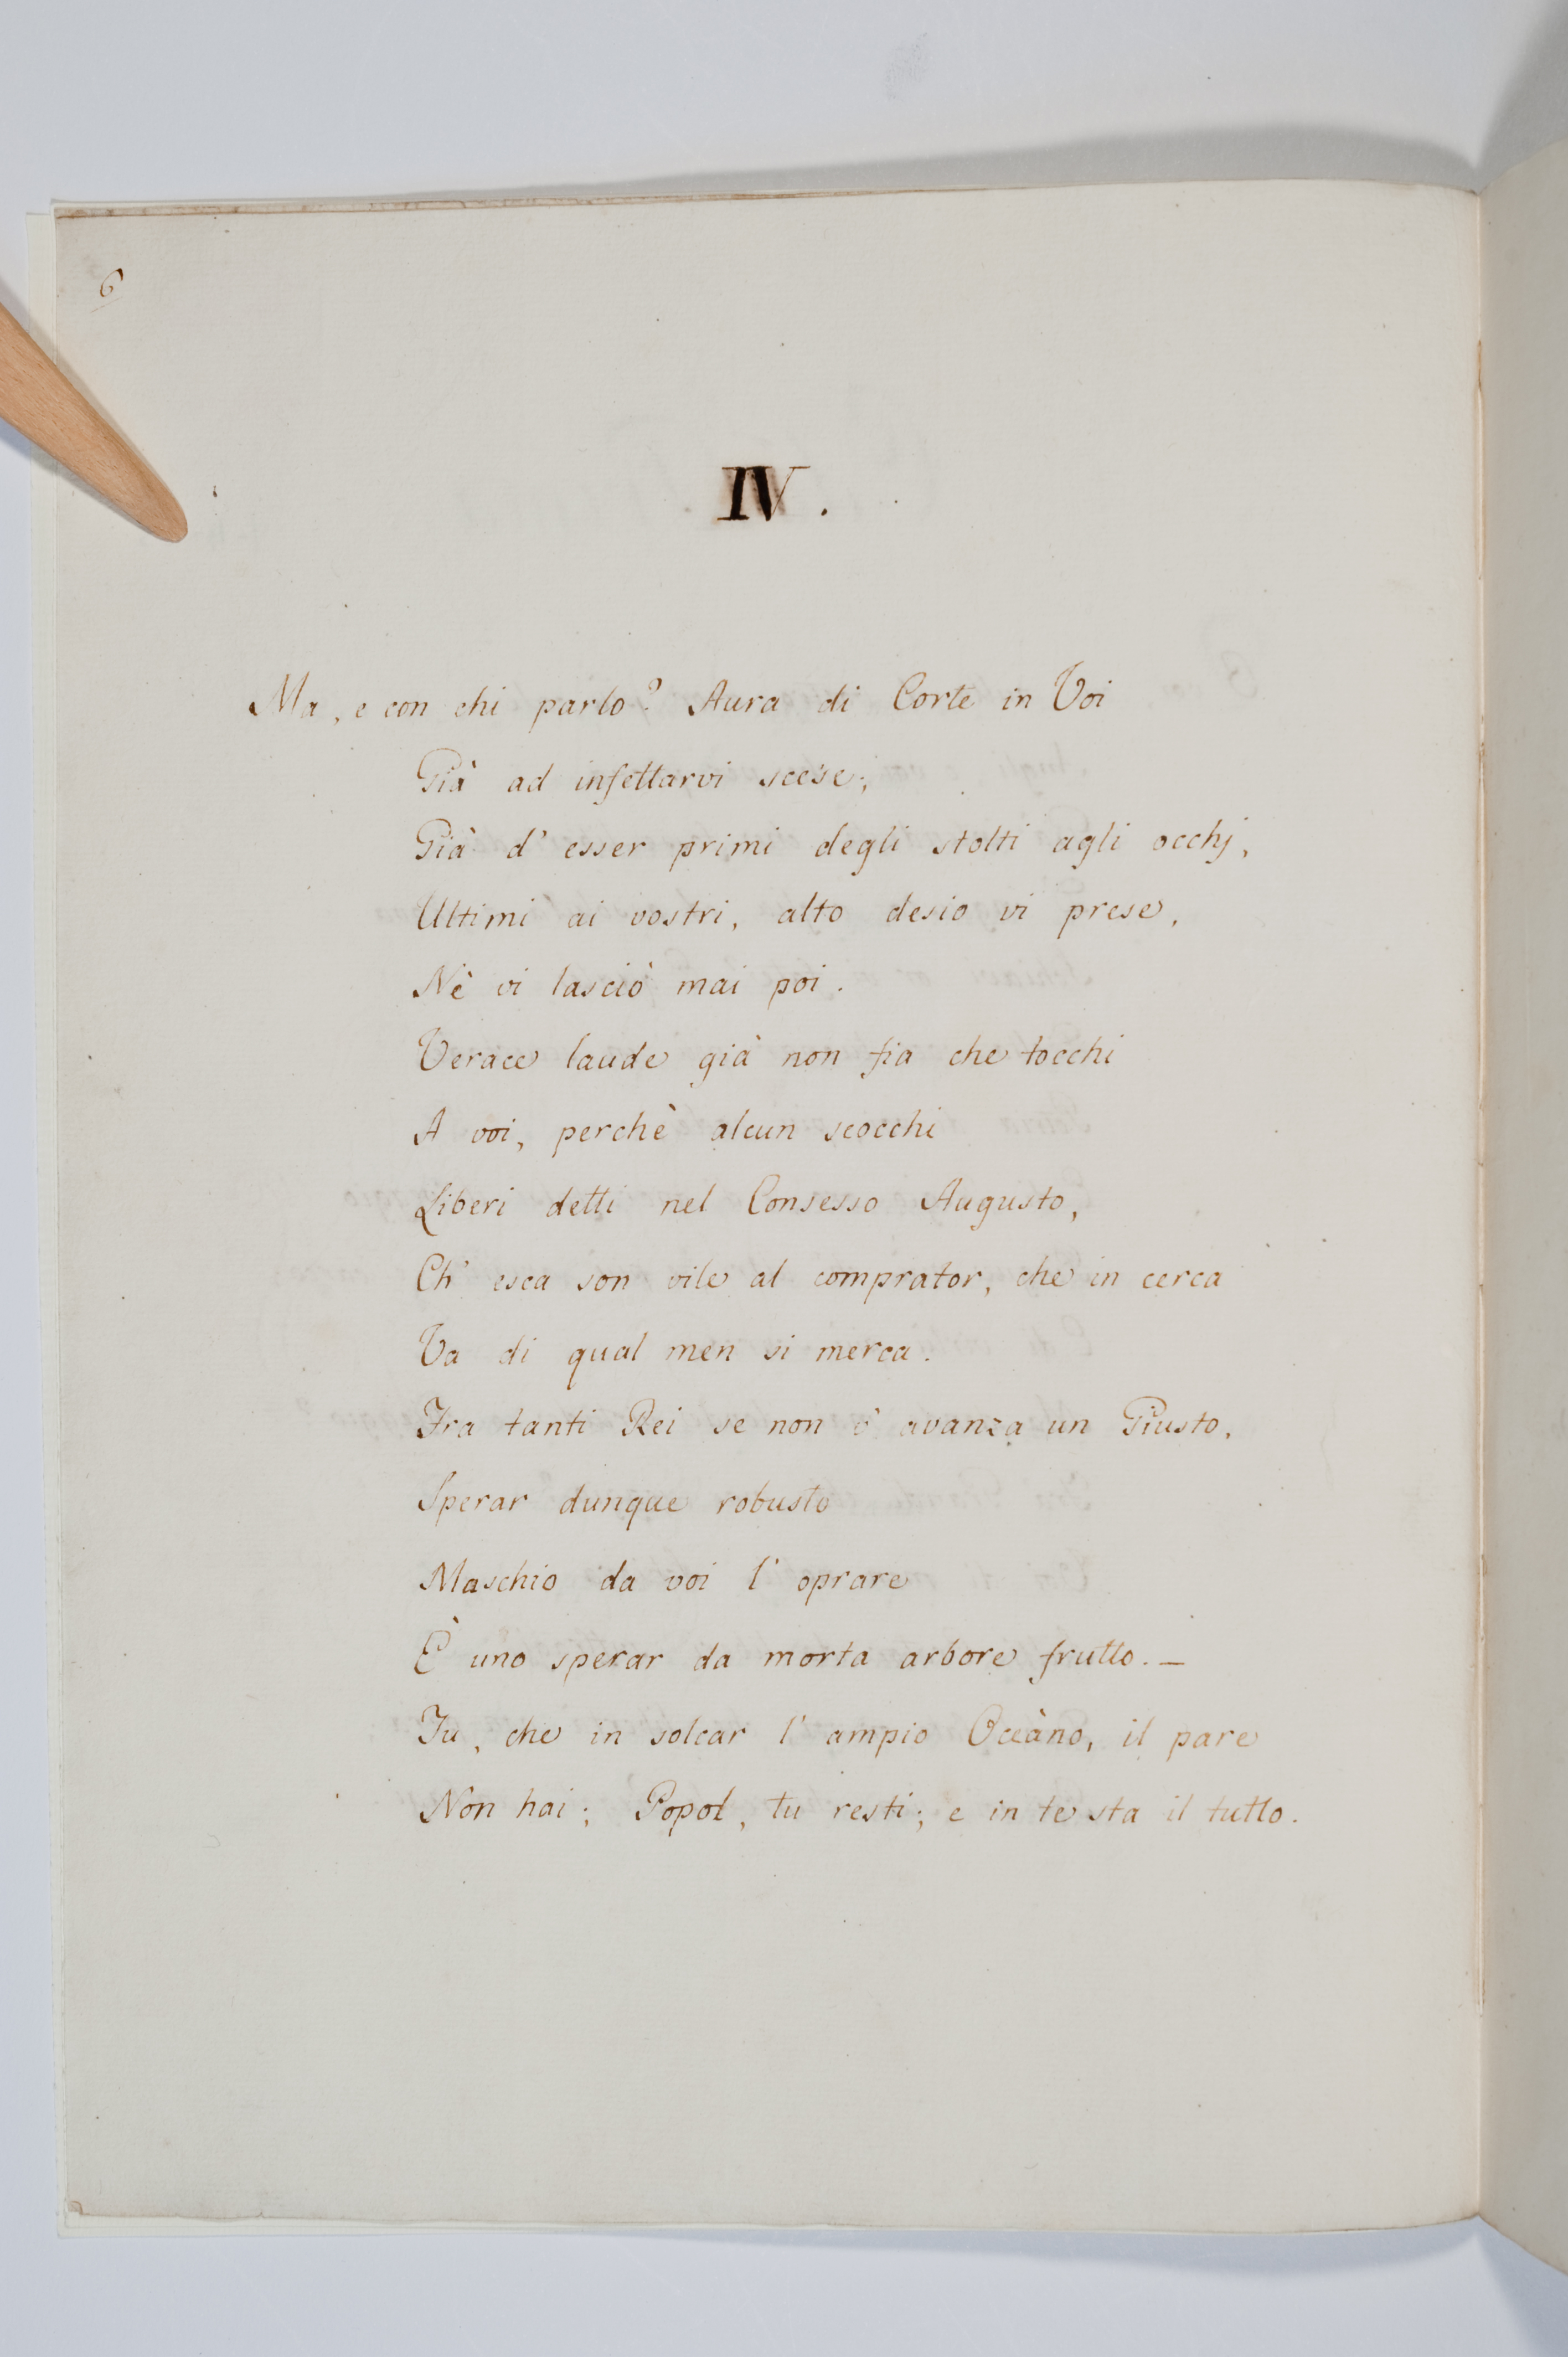 6
IV.
Ma, e con chi parlo? Aura di Corte in Voi
Già ad infettarvi scese;
Già d' esser primi degli stolti agli occhj,
Ultimi ai vostri, alto desio vi prese,
Nè vi lasciò mai poi.
Verace laude già non fia che tocchi
A voi, perchè alcun scocchi
Liberi detti nel Consesso Augusto,
Ch' esca son vile al comprator, che in cerca
Va di qual men si merca.
Fra tanti Rei se non v' avanza un Giusto,
Sperar dunque robusto
Maschio da voi l' oprare
È uno sperar da morta arbore frutto. –
Tu, che in solcar l' ampio Oceàno, il pare
Non hai; Popol, tu resti; e in te sta il tutto.